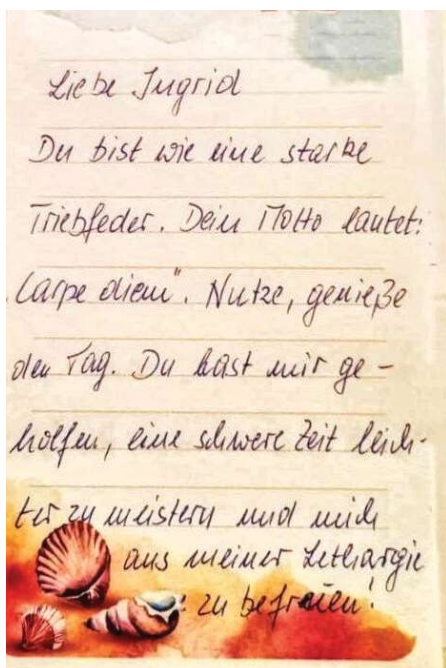 Liebe Ingrid
Du bist wie eine starke
Triebfeder. Dein Motto lautet:
"Carpe diem". Nutze, genieße
den Tag. Du hast mir ge-
holfen, eine schwere Zeit leich-
ter zu meistern und mich
aus meiner Lethargie
zu befreien!